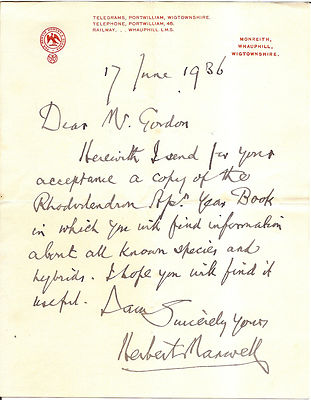 TELEGRAMS, PORTWILLIAM, WIGTOWNSHIRE.
TELEPHONE, PORTWILLIAM, 45.
RAILWAY... WHAUPHILL L.M.S.
MONREITH,
WHAUPHILL,
WIGTOWNSHIRE.
17 June 1936
Dear Mr. Gordon
Herewith I send for your
acceptance a copy of the
Rhododendron Year Book
in which you will find information
about all known species and
hybrids. I hope you will find it
useful.
I am
Sincerely Yours
Herbert Maxwell